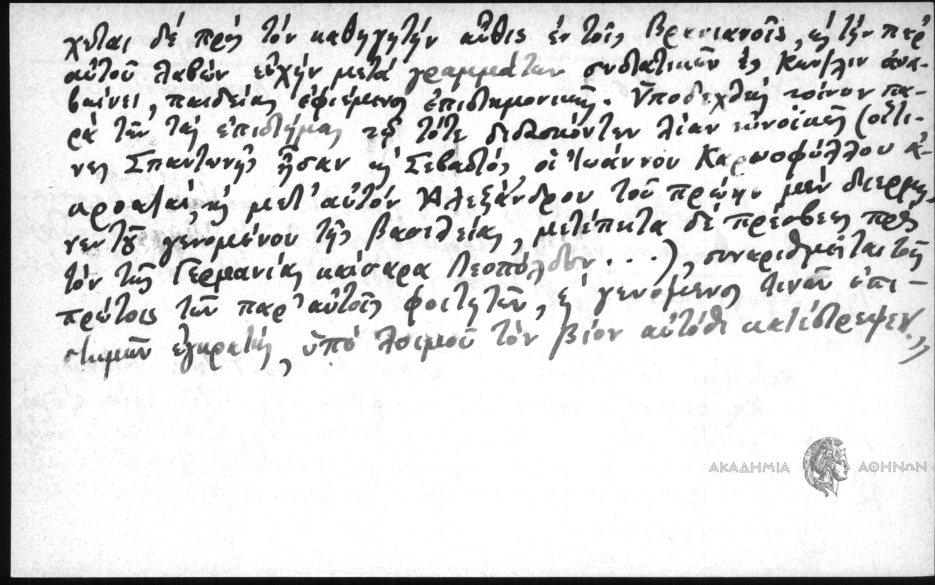 χεται δὲ πρὸς τὸν καθηγητὴν αὖθις ἐν τοῖς Βρανιανοῖς, κ̣ τὴν παρ'
αὐτοῦ λαβὼν εὐχὴν μετὰ γραμμάτων συστατικῶν ἐς Κων/λιν ἀνα-
βαίνει, παιδείας ἐφιέμενος ἐπιστημονικῆς. Ὑποδεχθεὶς τοίνυν πα-
ρὰ τῶν τὰς ἐπιστήμας τότε διδασκόντων λίαν εὐνοϊκῶς (οἵτι-
νες Σπαντωνῆς ἦσαν κ̣ Σεβαστός, οἱ Ἰωάννου Καρυοφύλλου ἀ-
κροαταί, κ̣ μετ' αὐτὸν Ἀλεξάνδρου τοῦ πρώην μὲν διερμη-
νευτοῦ γενομένου τῆς βασιλείας, μετέπειτα δὲ πρέσβεως πρὸς
τὸν τῆς Γερμανίας καίσαρα Λεοπόλδον...), συναριθμεῖται τοῖς
πρώτοις τῶν παρ' αὐτοῖς φοιτητῶν, κ̣ γενόμενος τινῶν ἐπι-
στημῶν ἐγκρατής, ὑπὸ λοιμοῦ τὸν βίον αὐτόθι κατέστρεψεν,,
ΑΚΑΔΗΜΙΑ ΑΘΗΝΩΝ